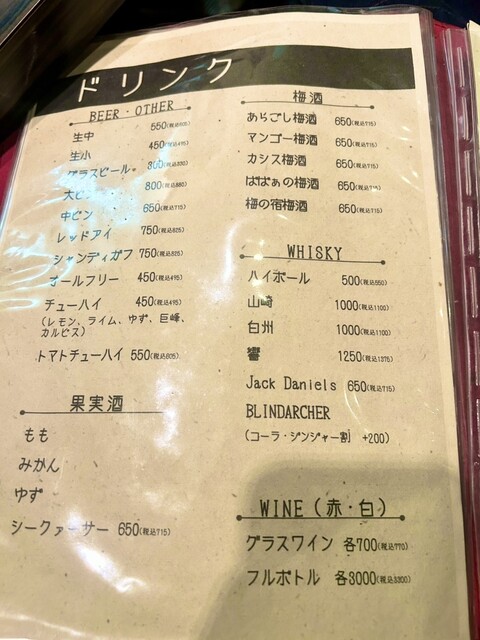 ドリンク
BEER・OTHER
生中 550(税込605)
生小 450(税込495)
グラスビール 300(税込330)
大ビン 800(税込880)
中ビン 650(税込710)
レッドアイ 750(税込825)
シャンディガフ 750(税込825)
オールフリー 450(税込495)
チューハイ 450(税込495)
(レモン、ライム、ゆず、巨峰、
カルピス)
トマトチューハイ 550(税込605)
果実酒
もも
みかん
ゆず
シークァーサー 650(税込715)
梅酒
あらごし梅酒 650(税込715)
マンゴー梅酒 650(税込715)
カシス梅酒 650(税込715)
ばばぁの梅酒 650(税込715)
梅の宿梅酒 650(税込715)
WHISKY
ハイボール 500(税込550)
山崎 1000(税込1100)
白州 1000(税込1100)
響 1250(税込1375)
Jack Daniels 650(税込715)
BLINDARCHER
(コーラ・ジンジャー割 +200)
WINE(赤・白)
グラスワイン 各700(税込770)
フルボトル 各3000(税込3300)